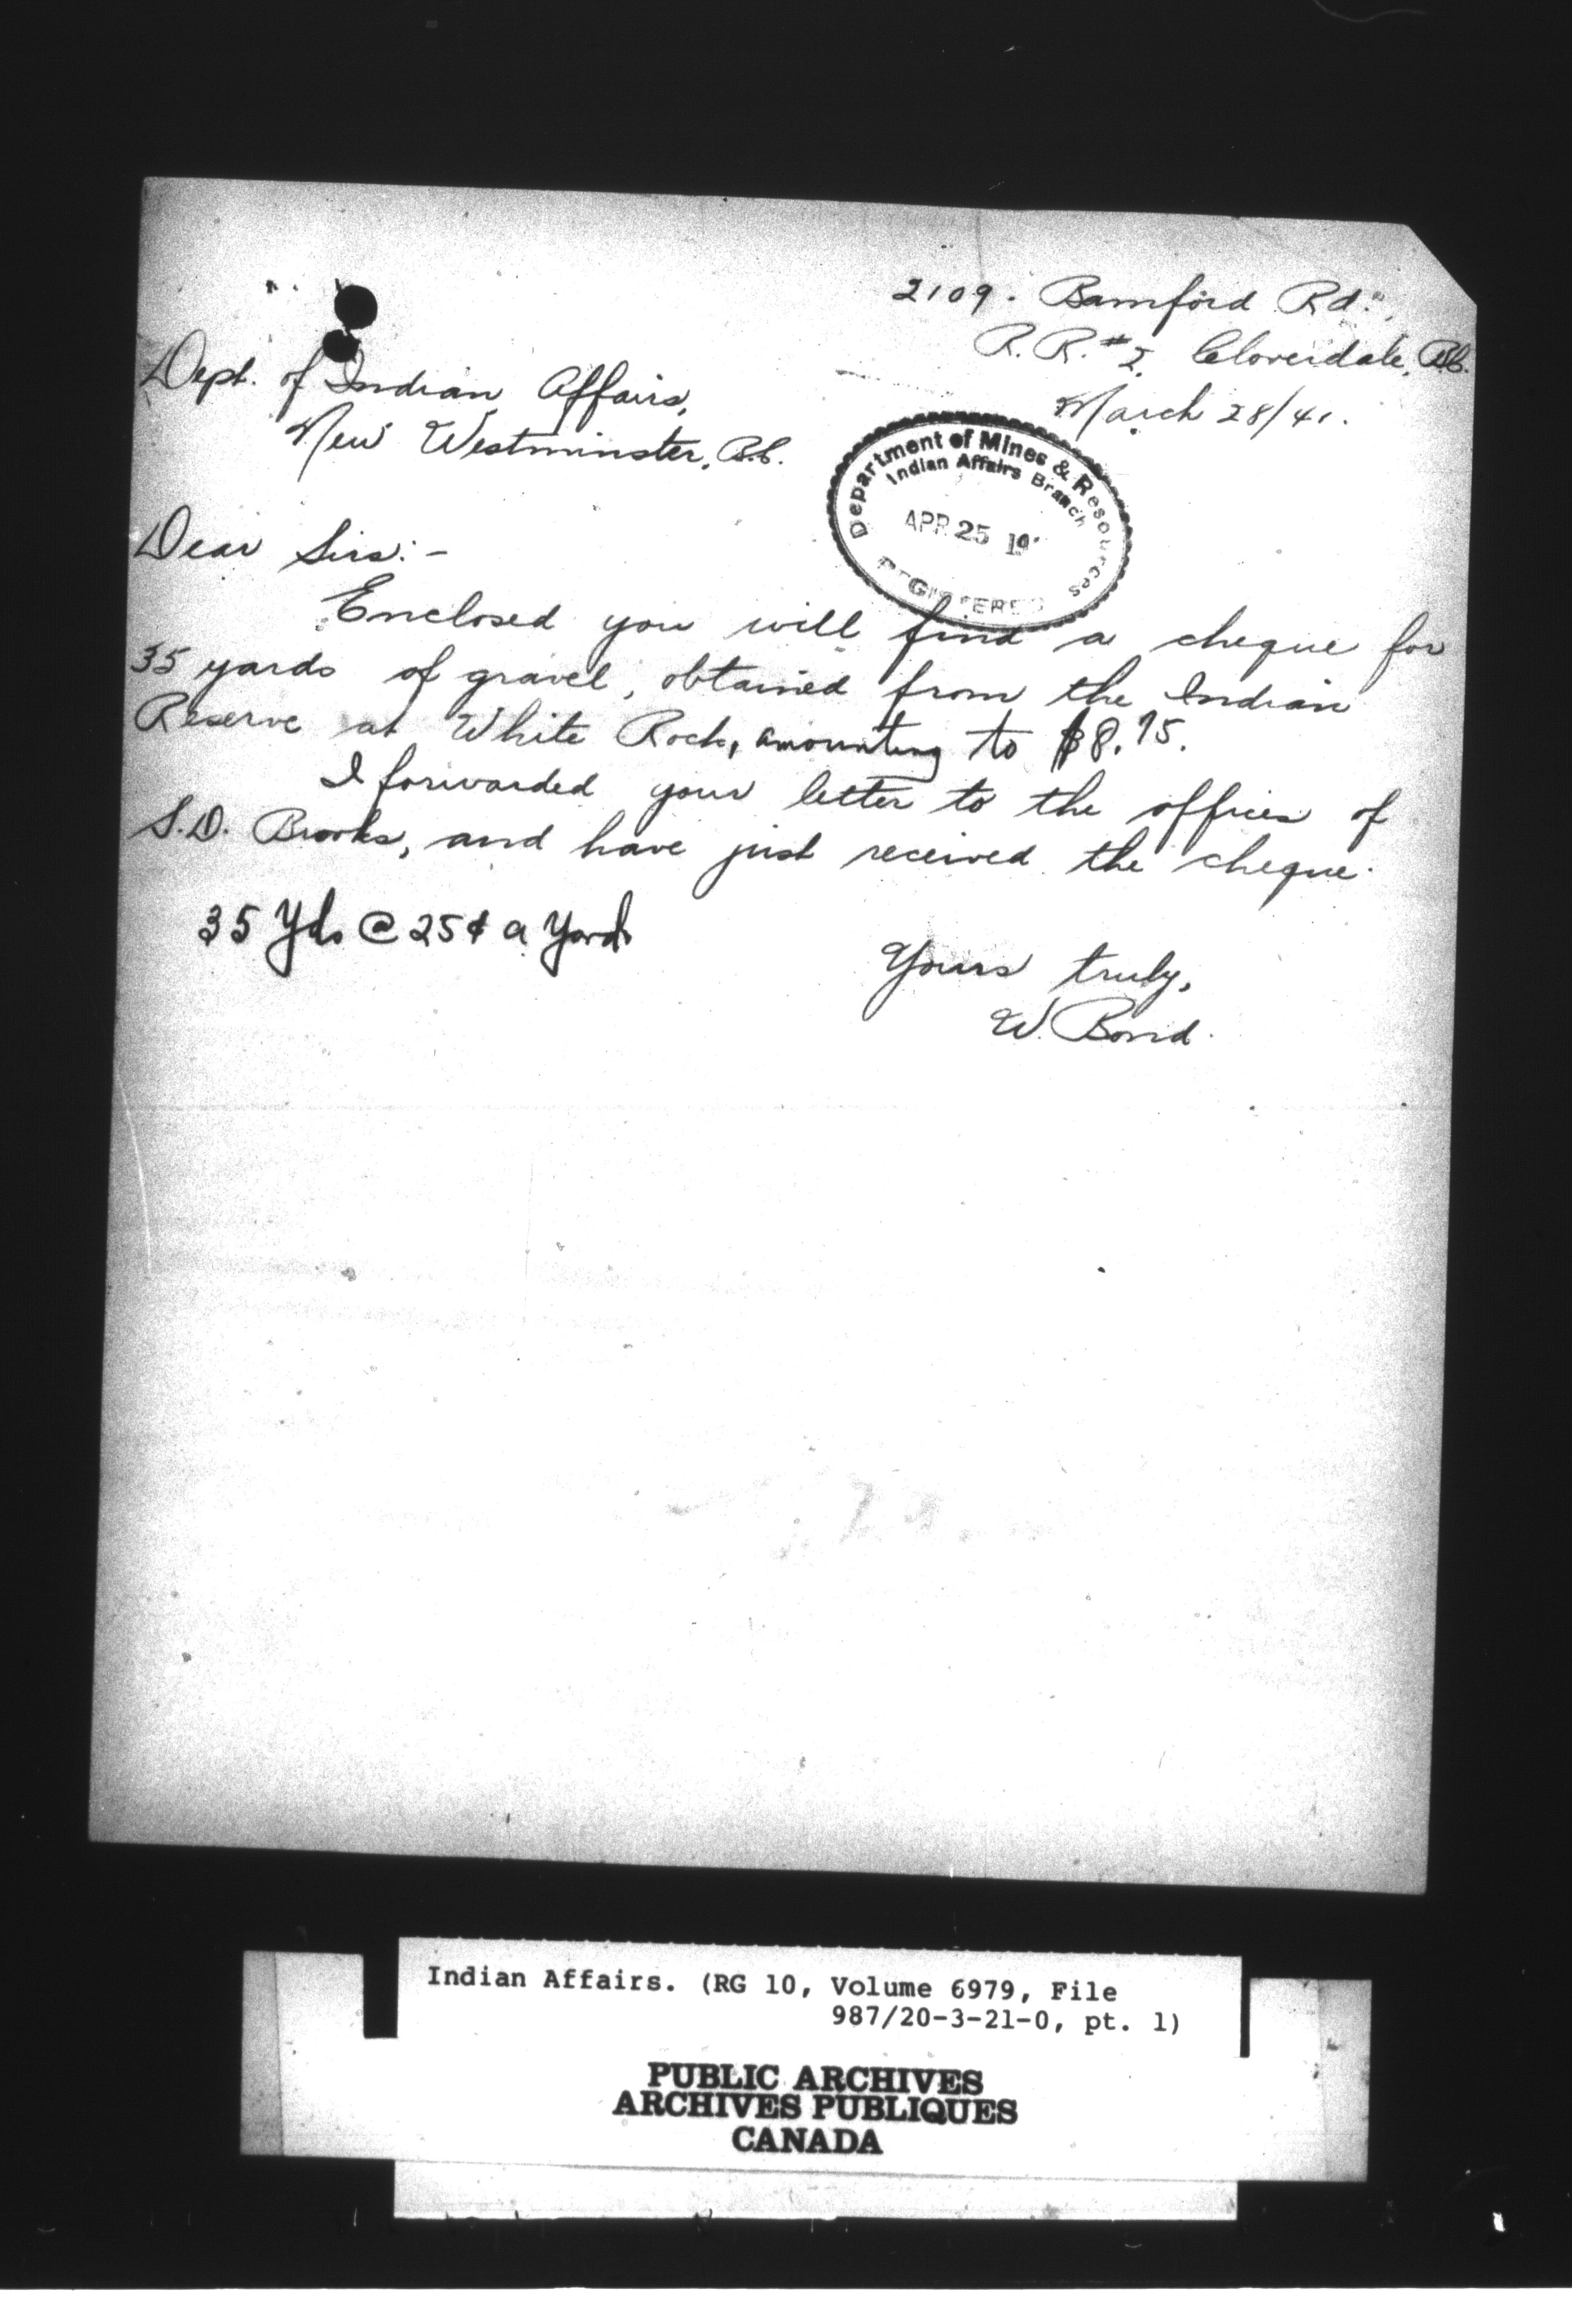 2109. Bamford Rd.,
R. R. #2, Cloverdale, B.C.
March 28/41.
Dept. of Indian Affairs,
New Westminster, B.C.
Department of Mines & Resources
Indian Affairs Branch
APR 25 19
REGISTERED
Dear Sirs:-
Enclosed you will find a cheque for
35 yards of gravel, obtained from the Indian
Reserve at White Rock, amounting to $8.75.
I forwarded your letter to the offices of
S.D. Brooks, and have just received the cheque.
35 Yds @ 25¢ a Yard
Yours truly,
W. Bond.
Indian Affairs. (RG 10, Volume 6979, File
987/20-3-21-0, pt. 1)
PUBLIC ARCHIVES
ARCHIVES PUBLIQUES
CANADA